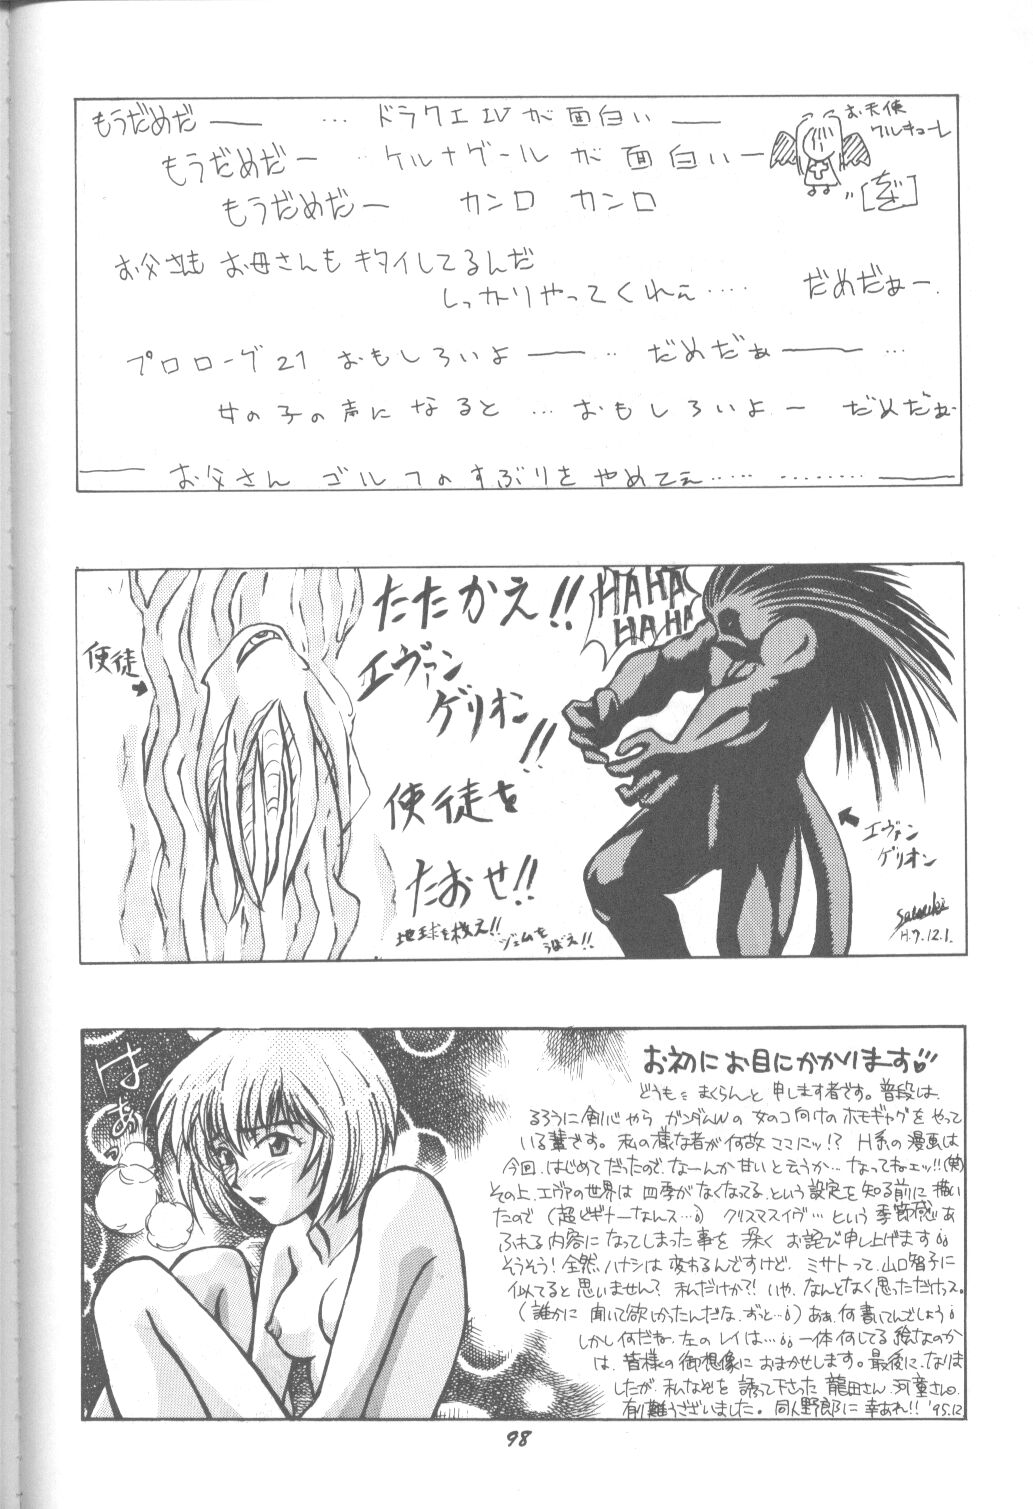 もうだめだ―― … ドラクエIVが面白い――
お天使
ケルキョーレ
もうだめだー ‥ケルナグールが面白いー
もうだめだー カンロ カンロ
お父さまも お母さんも キタイしてるんだ
しっかりやってくれぇ‥‥ だめだぁー.
プロローグ21 おもしろいよ――‥ だめだぁ――…
女の子の声に なると … おもしろいよー だめだぁ
――お父さん ゴルフのすぶりを やめてぇ‥‥ ‥‥‥‥――
たたかえ!!
HAHA
HAHA
使徒
エヴァン
ゲリオン!!
使徒を
たおせ!!
エヴァン
ゲリオン
地球を救え!!
ジェムを
うばえ!!
H.7.12.1.
はぁ
お初にお目にかかります
どうも: まくらんと 申します者です。普段は
るろうに剣心やら ガンダムWの 女のコ向けの ホモギャグを やって
いる輩です。私の様な者が何故ココにッ!? H系の漫画は
今回、はじめてだったので、なーんか甘いと云うか…なってねェッ!!(笑)
その上、エヴァの世界は 四季がなくなってる、という設定を知る前に描い
たので (超ビギナーなんス…) クリスマスイヴ…という季節感あ
ふれる内容になってしまった事を 深く お詫び申し上げます
そうそう! 全然、ハナシは 変わるんですけど、ミサトって、山口智子に
似てると思いません? 私だけか?! いや、なんとなく思っただけっス。
(誰かに 聞いて欲しかったんだな、ずっと…) あぁ、何書いてんでしょう
しかし何だね、左のレイは…一体何してる絵なのか
は、皆様の御想像に おまかせします。最後に、なりま
したが、私なぞを 誘って下さった 龍田さん、河童さん。
有難うございました。同人野郎に 幸あれ!! '95.12
98